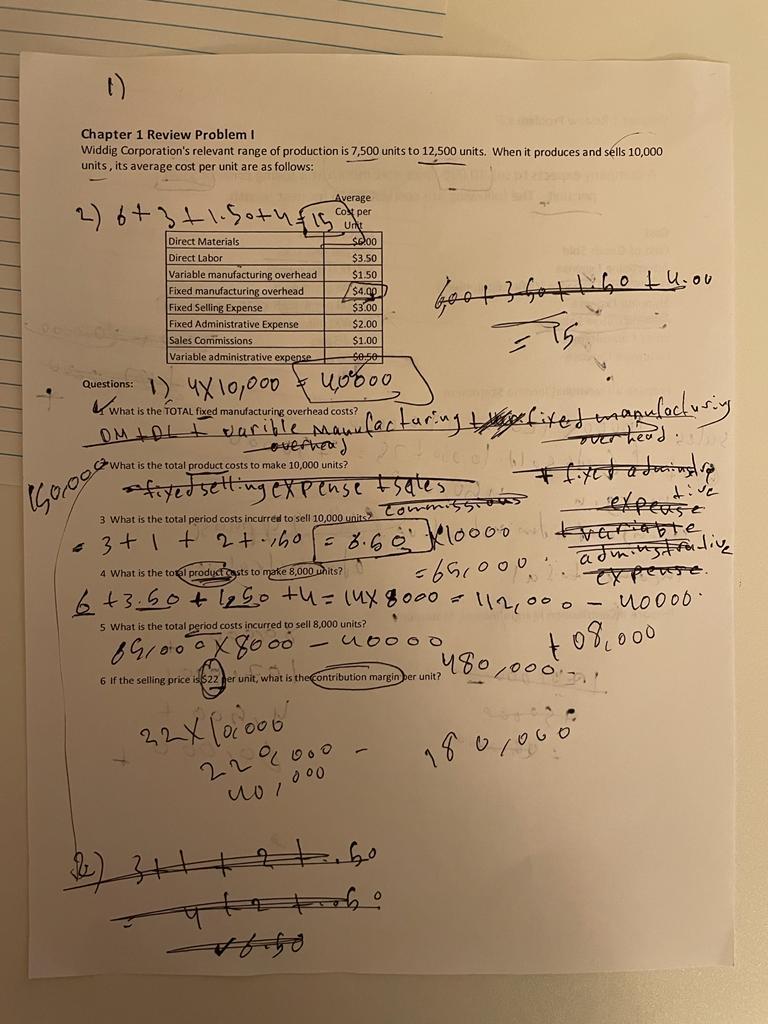 1)
Chapter 1 Review Problem I
Widdig Corporation's relevant range of production is 7,500 units to 12,500 units. When it produces and sells 10,000
units , its average cost per unit are as follows:
Average
Cost per
Unit
2) 6 + 3 + 1.50 + 4 = 15
Direct Materials $6.00
Direct Labor $3.50
Variable manufacturing overhead $1.50
Fixed manufacturing overhead $4.00
Fixed Selling Expense $3.00
Fixed Administrative Expense $2.00
Sales Commissions $1.00
Variable administrative expense $0.50
6,00 + 3.50 + 1.50 + 4.00
= 15
Questions: 1) 4X10,000 = 40000
1 What is the TOTAL fixed manufacturing overhead costs?
DM + DL + varible manufacturing + fixed manufacturing
overhead overhead.
150,000
What is the total product costs to make 10,000 units?
fixed selling expense + sales
commissions
+ fixed adminstrative
expense
+ variable
adminstrative
expense.
3 What is the total period costs incurred to sell 10,000 units?
= 3 + 1 + 2 + .50 = 6.50 X10000
= 65,000
4 What is the total product costs to make 8,000 units?
6 + 3.50 + 1.50 + 4 = 14 X 8000 = 112,000 - 40000.
5 What is the total period costs incurred to sell 8,000 units?
65,000 X 8000 - 40000
108,000
6 If the selling price is $22 per unit, what is the contribution margin per unit?
480,000 -
22 X 10,000
220,000 - 180,000
40,000
2) 3 + 1 + 2 + .50
= 4 + 2 + .50
6.50